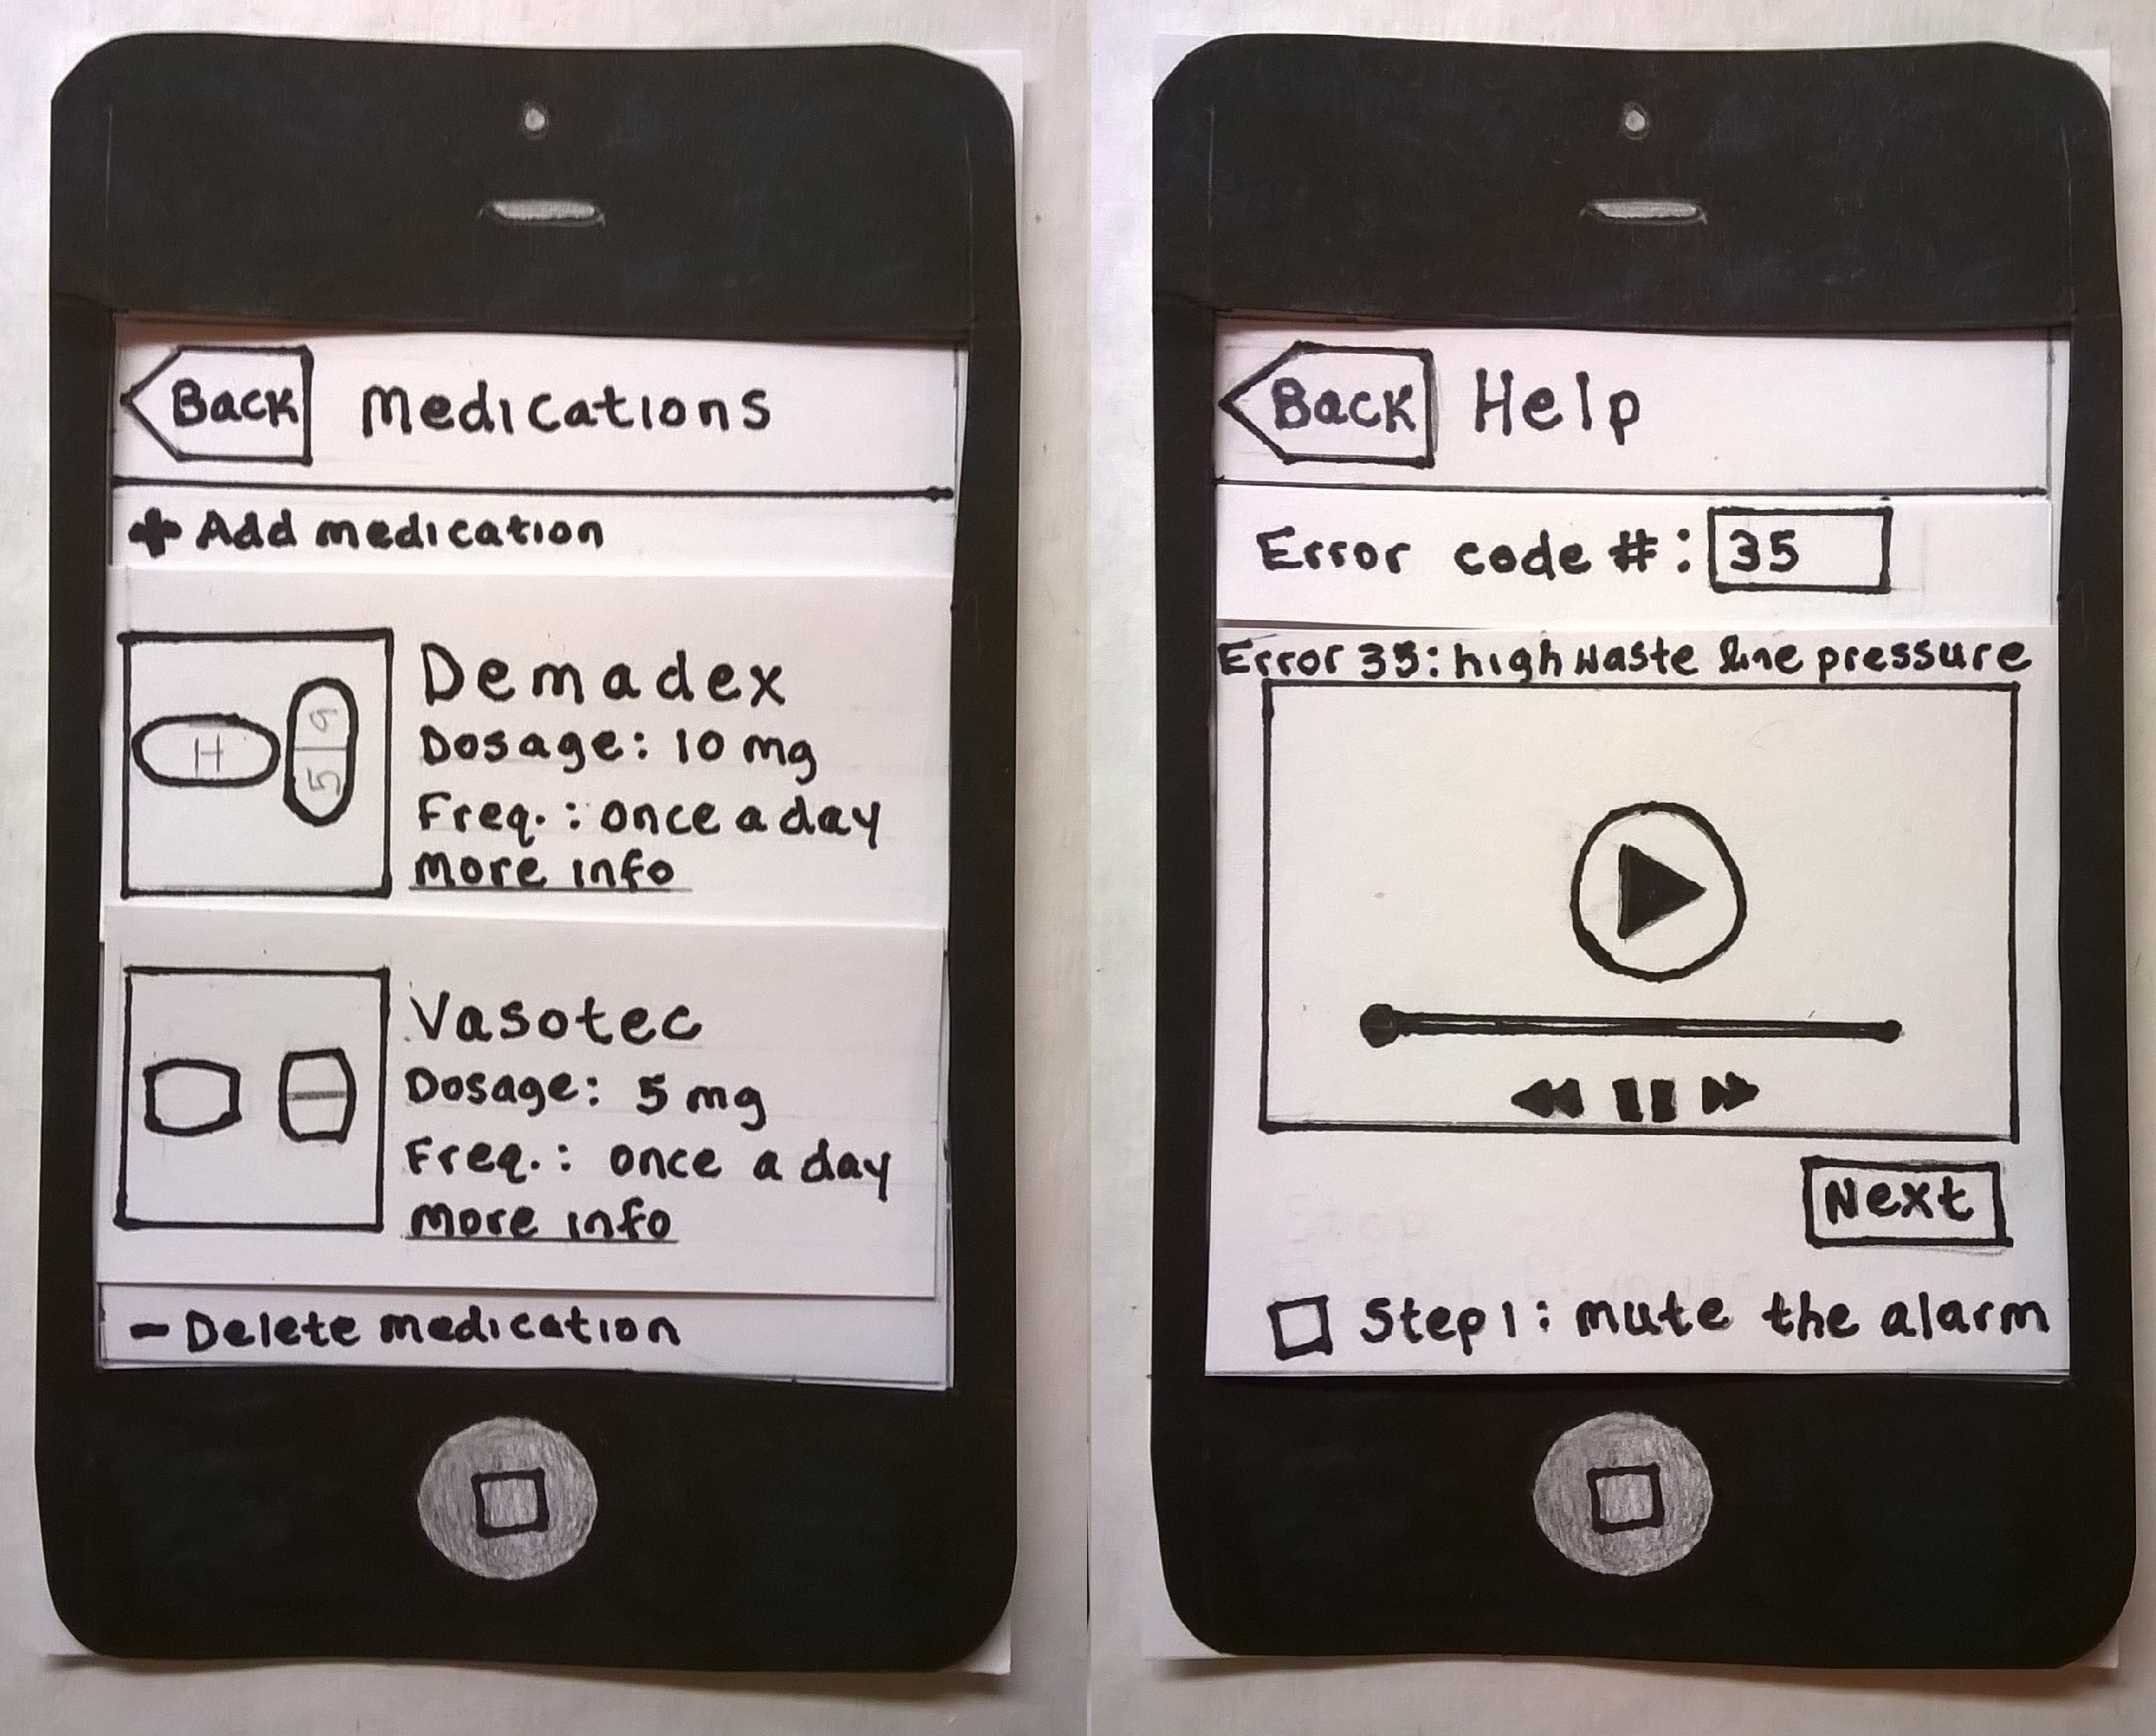 Back Medications
+ Add medication
H
5 9
Demadex
Dosage: 10 mg
Freq. : once a day
more info
Vasotec
Dosage: 5 mg
Freq. : once a day
more info
- Delete medication
Back Help
Error code #: 35
Error 35: high waste line pressure
Next
Step 1: mute the alarm